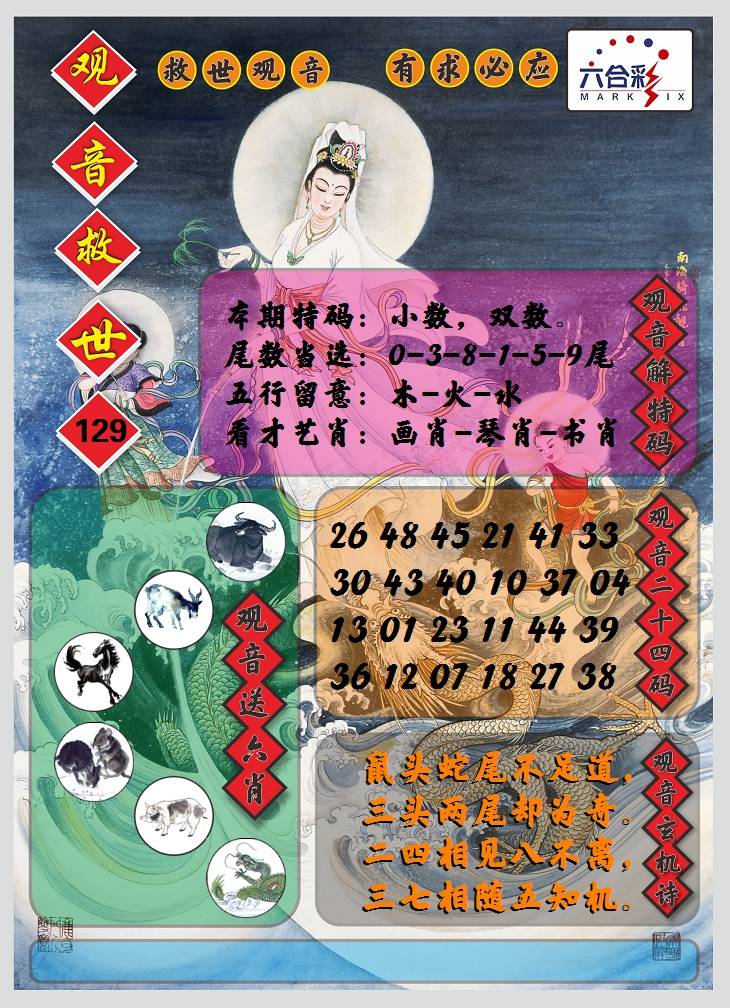 观音救世
129
救世观音 有求必应
六合彩
MARK SIX
本期特码：小数，双数。
尾数当选：0-3-8-1-5-9尾
五行留意：木-火-水
看才艺肖：画肖-琴肖-书肖
观音解特码
26 48 45 21 41 33
30 43 40 10 37 04
13 01 23 11 44 39
36 12 07 18 27 38
观音二十四码
观音送六肖
鼠头蛇尾不足道，
三头两尾却为奇。
二四相见八不离，
三七相随五知机。
观音玄机诗